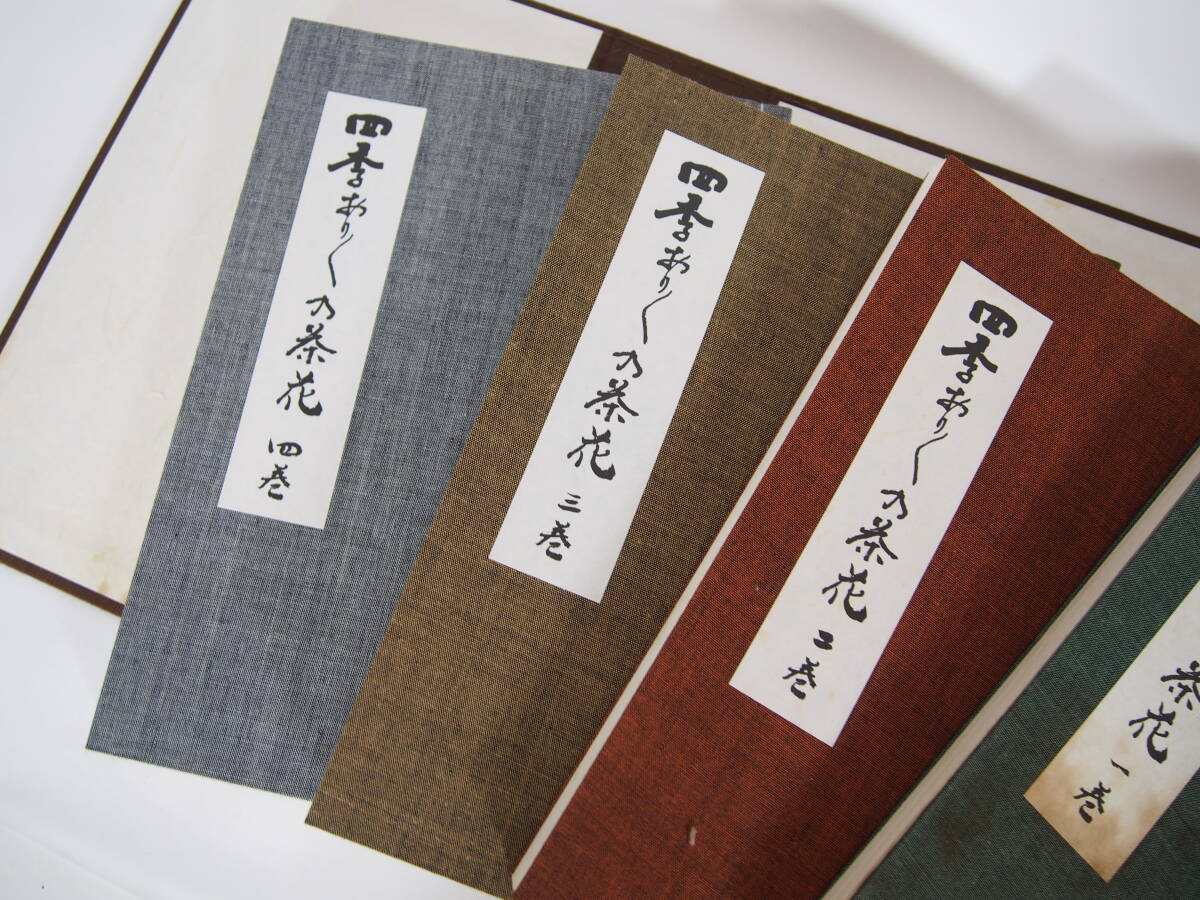 茶花 一巻
四季おり〱乃茶花 二巻
四季おり〱乃茶花 三巻
四季おり〱乃茶花 四巻